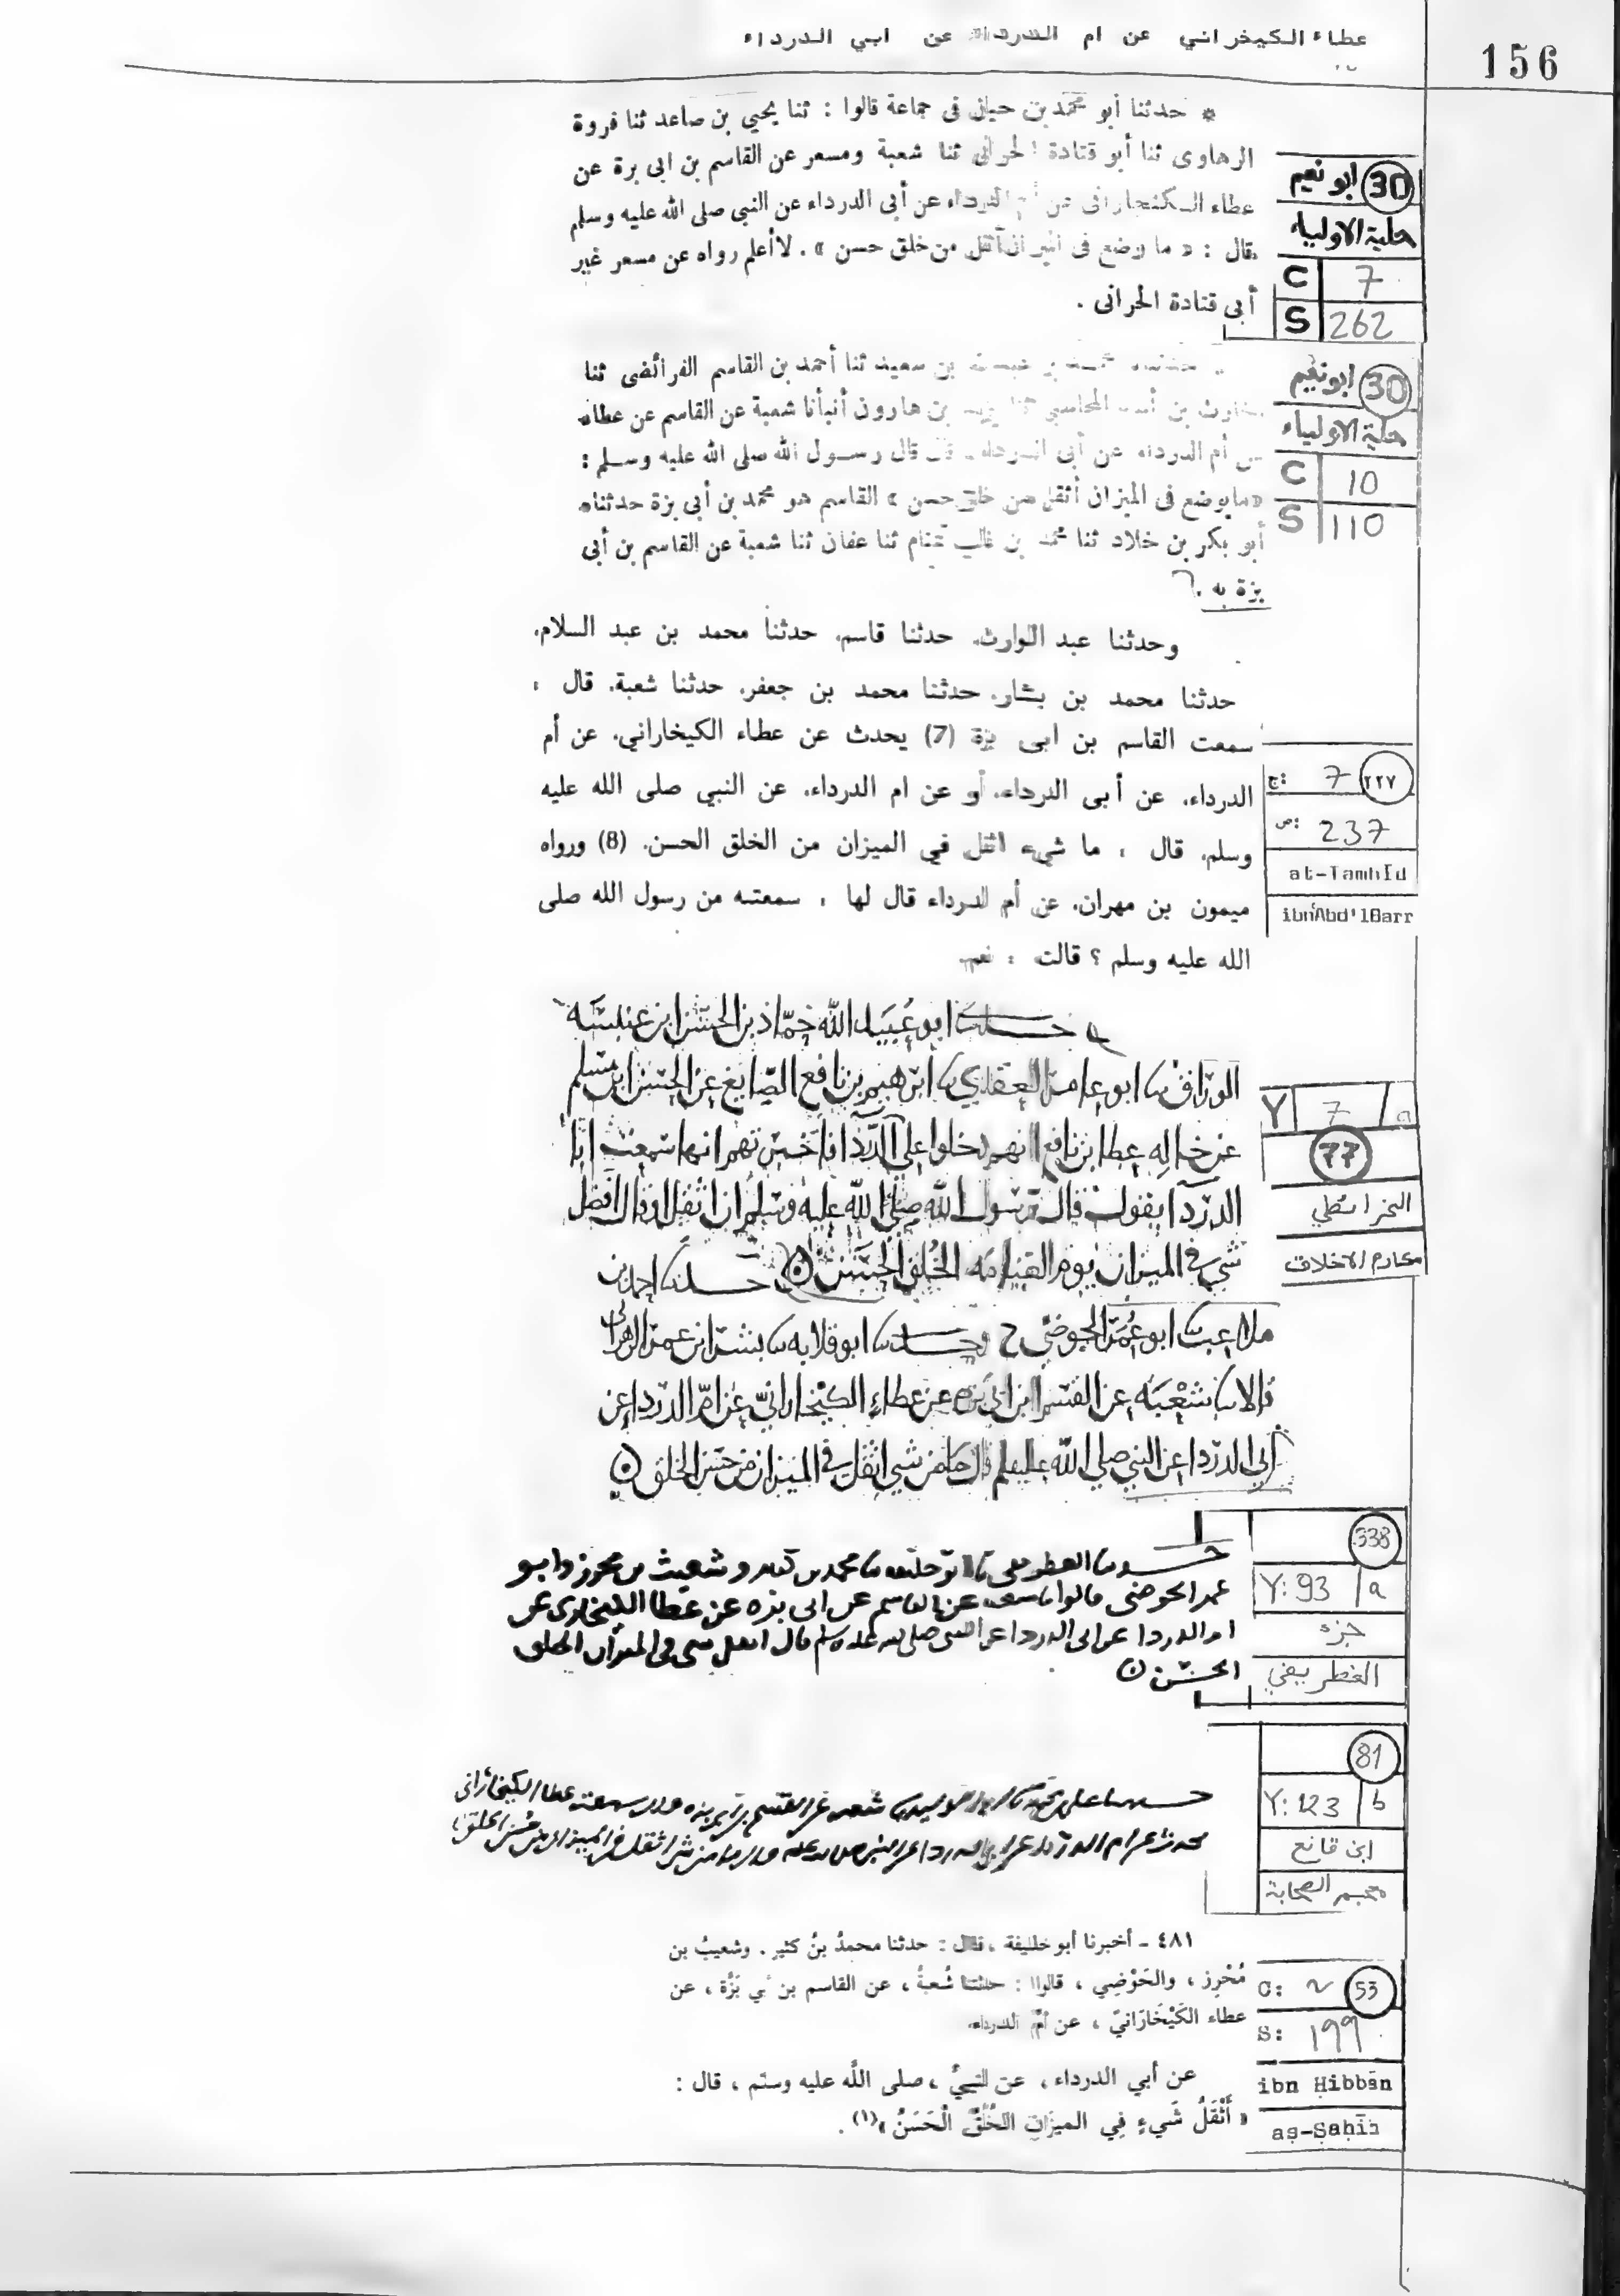 عطاء الكيخراني عن ام الدرداء عن ابي الدرداء
156
* حدثنا أبو محمد بن حيان فى جماعة قالوا : ثنا يحيى بن صاعد ثنا فروة
الرهاوى ثنا أبو قتادة الحرانى ثنا شعبة ومسعر عن القاسم بن ابى برة عن
عطاء الكنجارانى عن أم الدرداء عن أبى الدرداء عن النبى صلى الله عليه وسلم
قال : « ما وضع فى الميزان أثقل من خلق حسن » . لا أعلم رواه عن مسعر غير
أبى قتادة الحرانى .
30 ابو نعيم
حلية الاولياء
C 7
S 262
بن سعيد ثنا أحمد بن القاسم الفرائضى ثنا
بن أسد المحاسبي ثنا يزيد بن هارون أنبأنا شعبة عن القاسم عن عطاء
أم الدرداء عن أبى الدرداء . قال قال رسول الله صلى الله عليه وسلم :
«ما يوضع فى الميزان أثقل من خلق حسن » القاسم هو محمد بن أبى بزة حدثناه
أبو بكر بن خلاد ثنا محمد بن غالب تمتام ثنا عفان ثنا شعبة عن القاسم بن أبى
بزة به .
30 ابو نعيم
حلية الاولياء
C 10
S 110
وحدثنا عبد الوارث، حدثنا قاسم، حدثنا محمد بن عبد السلام،
حدثنا محمد بن بشار، حدثنا محمد بن جعفر، حدثنا شعبة، قال :
سمعت القاسم بن ابى بزة (7) يحدث عن عطاء الكيخاراني، عن أم
الدرداء، عن أبى الدرداء، أو عن ام الدرداء، عن النبي صلى الله عليه
وسلم، قال : ما شيء اثقل في الميزان من الخلق الحسن. (8) ورواه
ميمون بن مهران، عن أم الدرداء قال لها : سمعته من رسول الله صلى
الله عليه وسلم ؟ قالت : نعم.
ج: 7 ٢٢٧
ص: 237
at-Tamhīd
ibn ʿAbd'lBarr
حدثنا ابو عبيد الله حماد بن الحسن ابن عنبسه
الوراق ابو عامر العقدي ابرهيم بن نافع الصايغ عن الحسن ابن مسلم
عن خاله عطا بن نافع انهم دخلوا على ام الدردا فاخبرتهم انها سمعت ابا
الدردا يقول قال رسول الله صلى الله عليه وسلم ان اثقل او قال افضل
شي في الميزان يوم القيامه الخلق الحسن حدثنا احمد بن
ملاعب ابو عمر الحوضي ح وحدثنا ابو قلابه بشر ابن عمر الزهراني
قالا شعبه عن القسم ابن ابي بزه عن عطاء الكيخاراني عن ام الدردا عن
ابي الدردا عن النبي صلى الله عليه وسلم قال ما من شي اثقل في الميزان من حسن الخلق
Y 7 / a
77
الخرائطي
مكارم الاخلاق
حدثنا ابو خليفه محمد بن كثير و شعيث بن محرز وابو
عمر الحوضى قالوا شعبه عن القاسم عن ابى بزه عن عطا الكيخارى عن
ام الدردا عن ابى الدردا عن النبى صلى الله عليه وسلم قال اثقل شى فى الميزان الخلق
الحسن
338
Y: 93 a
جزء
الغطريفي
شعبه عن القسم بن ابى بزه قال سمعت عطا الكيخارانى
يحدث عن ام الدردا عن ابى الدردا عن النبى صلى الله عليه قال ما من شى اثقل فى الميزان من حسن الخلق
81
Y: 123 b
ابن قانع
معجم الصحابة
٤٨١ ـ أخبرنا أبو خليفة ، قال : حدثنا محمدُ بنُ كثير . وشعيبُ بن
مُحْرِز ، والحَوْضِي ، قالوا : حدثنا شُعبةُ ، عن القاسم بن أبي بَزَّة ، عن
عطاء الكَيْخَارَانيّ ، عن أمّ الدرداء
عن أبي الدرداء ، عن النبيِّ ، صلى اللَّه عليه وسلم ، قال :
« أَثْقَلُ شَيءٍ فِي الميزَانِ الخُلُقُ الْحَسَنُ »(١) .
C: ٢ 53
S: ١٩٩
ibn Ḥibbān
aṣ-Ṣaḥīḥ